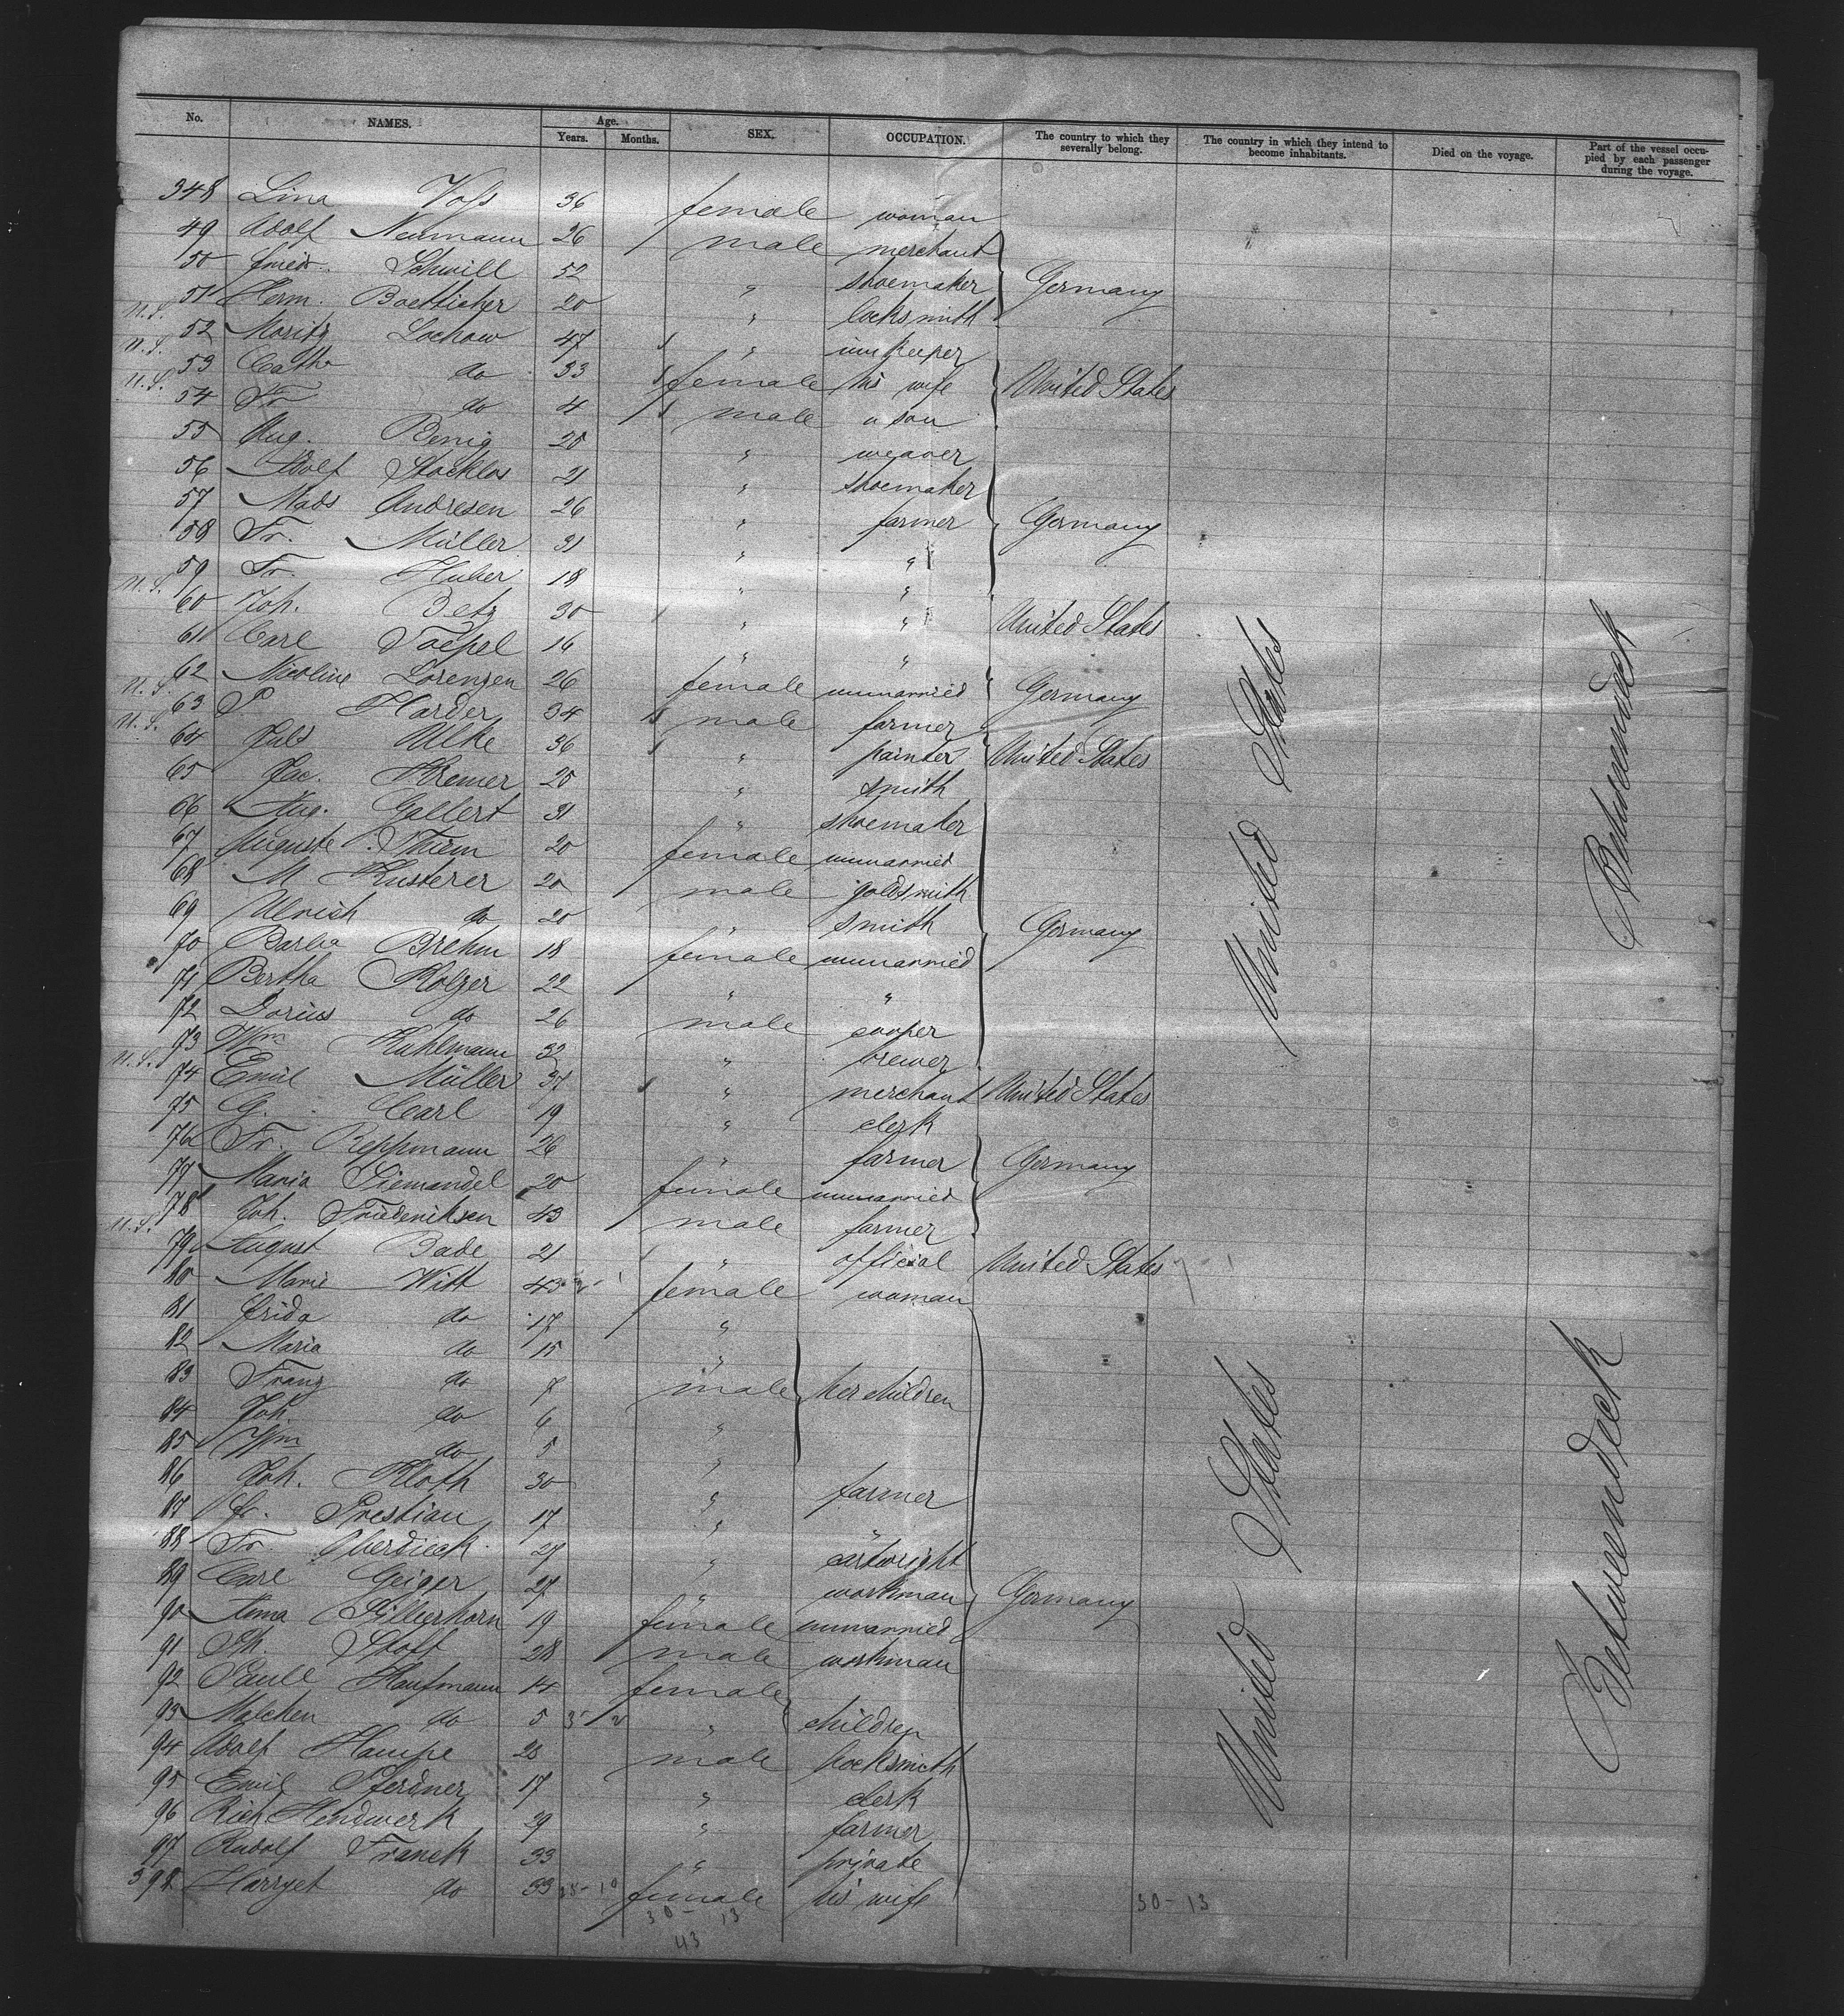 No. NAMES. Age. Years. Months. SEX. OCCUPATION. The country to which they severally belong. The country in which they intend to become inhabitants. Died on the voyage. Part of the vessel occupied by each passenger during the voyage.
348 Lina Voss 36 female woman
49 Adolf Neumann 26 male merchant
50 Friedr. Schwill 52 " shoemaker Germany
51 Herm. Boetticher 20 " locksmith
U.S. 52 Moritz Lochow 47 " innkeeper
U.S. 53 Cath. do 33 female his wife United States
U.S. 54 Fr do 4 male a son
55 Aug. Benig 25 " weaver
56 Adolf Stocklos 21 " shoemaker
57 Mads Andresen 26 " farmer Germany
58 Fr. Müller 31 " "
59 Fr. Huber 18 " "
U.S. 60 Joh. Betz 30 " " United States
61 Carl Toepel 16 " "
62 Nicoline Lorenzen 26 female unmarried Germany
U.S. 63 P Harder 34 male farmer
U.S. 64 Juls Ulke 36 " painter United States
65 Jac. Kremer 25 " smith
66 Aug. Gallert 31 " shoemaker
67 Auguste Thiem 20 female unmarried
68 M. Kusterer 20 male goldsmith
69 Ulrich do 20 " smith Germany
70 Barba Brehm 18 female unmarried
71 Bertha Kolzer 22 " "
72 Darius do 26 male cooper
73 Wm Kuhlmann 32 " brewer
U.S. 74 Emil Müller 37 " merchant United States
75 G. Carl 19 " clerk
76 Fr. Reppmann 26 " farmer Germany
77 Maria Siemandel 20 female unmarried
78 Joh. Friederiksen 43 male farmer
U.S. 79 August Bade 21 " official United States
80 Marie Witt 43 female woman
81 Frida do 17 "
82 Maria do 15 "
83 Franz do 7 male her children
84 Joh. do 6 "
85 Wm do 5 "
86 Joh. Kloth 30 " farmer
87 Fr. Prestian 17 " "
88 Fr. Oberdieck 27 " cartwright
89 Carl Geiger 27 " workman Germany
90 Anna Hillerhorn 19 female unmarried
91 Ph. Stoft 28 male workman
92 Paull Kaufmann 14 female
93 Malchen do 5 " children
94 Adolf Hampe 20 male locksmith
95 Emil Pferdner 17 " clerk
96 Rich Hendwerk 29 " farmer
97 Rudolf Franck 33 " private
398 Harryet do 33 female his wife
30 - 13
43
30-13
United States
United States
Betweendeck
Betweendeck